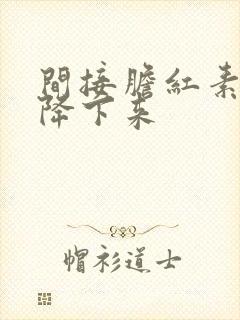 間接膽紅素
降下来
帽衫道士